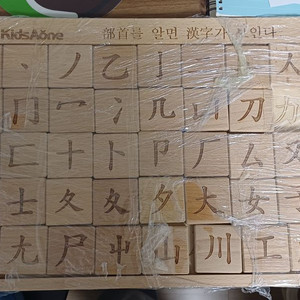 KidsAone 部首를 알면 漢字가 보인다
丶 丿 乙 亅 人
冂 冖 冫 几 凵 刀 力
匚 十 卜 卩 厂 厶 又
士 夂 夊 夕 大 女
尢 尸 屮 山 川 工